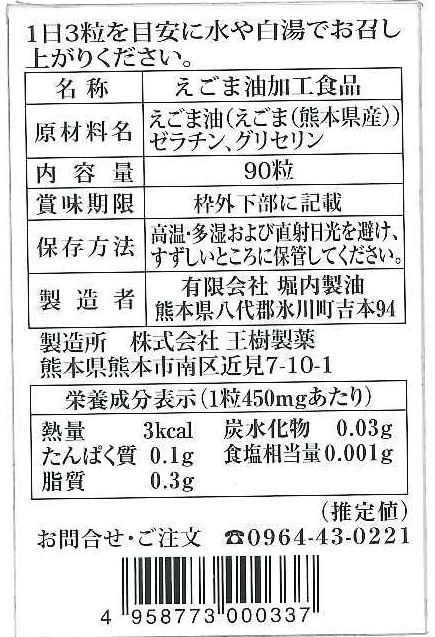 1日3粒を目安に水や白湯でお召し
上がりください。
名称 えごま油加工食品
原材料名 えごま油(えごま(熊本県産))
ゼラチン、グリセリン
内容量 90粒
賞味期限 枠外下部に記載
保存方法 高温・多湿および直射日光を避け、
すずしいところに保管してください。
製造者 有限会社 堀内製油
熊本県八代郡氷川町吉本94
製造所 株式会社 王樹製薬
熊本県熊本市南区近見7-10-1
栄養成分表示(1粒450mgあたり)
熱量 3kcal 炭水化物 0.03g
たんぱく質 0.1g 食塩相当量 0.001g
脂質 0.3g
(推定値)
お問合せ・ご注文 ☎0964-43-0221
4 958773 000337